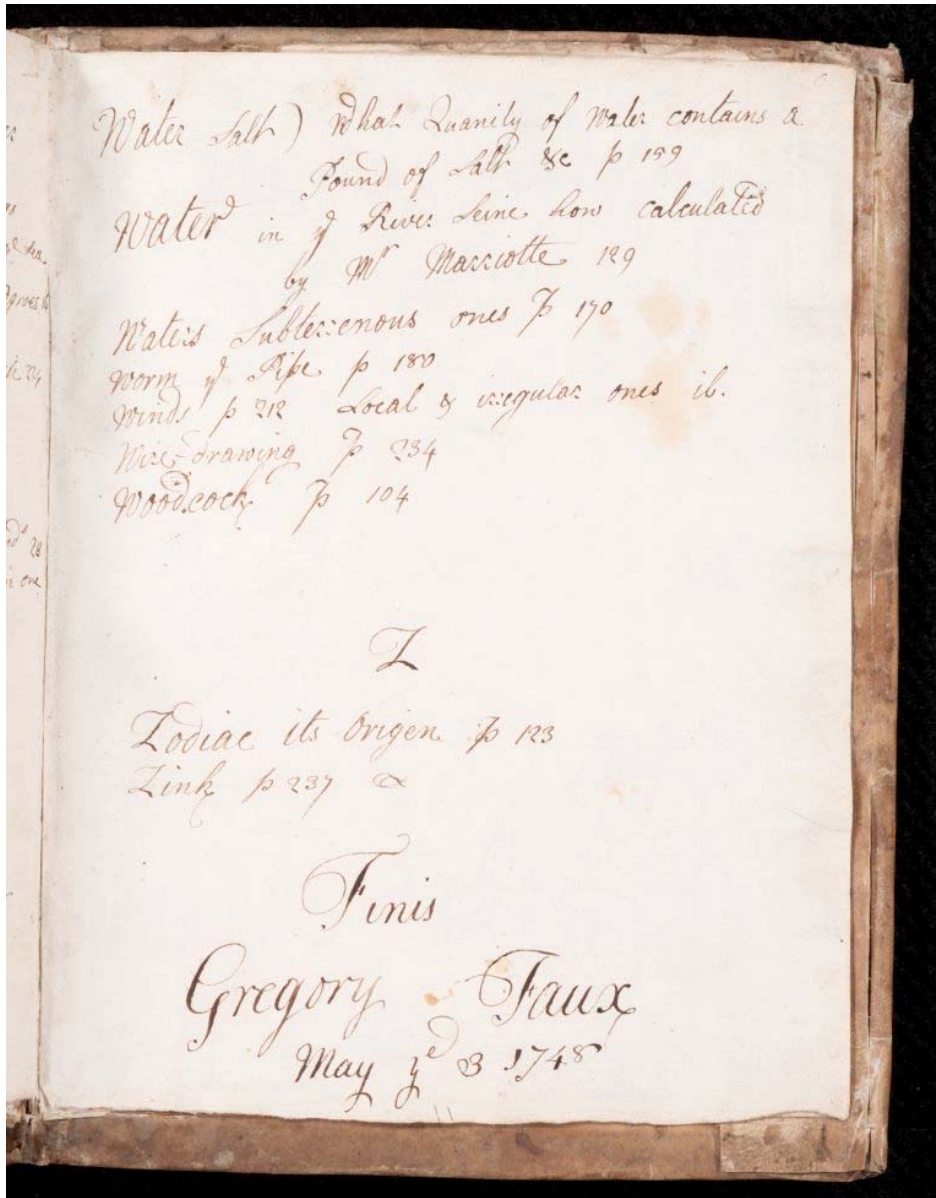 Water Salt) What Quanity of Water contains a
Pound of Salt &c p 159
Water in ye River Seine how calculated
by Mr Marriotte 129
Waters Subterrenous ones p 170
Worm ye Pipe p 180
Winds p 212 Local & irregular ones ib.
Wire-drawing p 234
Woodcock p 104
Z
Zodiac its Origen p 123
Zink p 237
Finis
Gregory Faux
May ye 3 1748